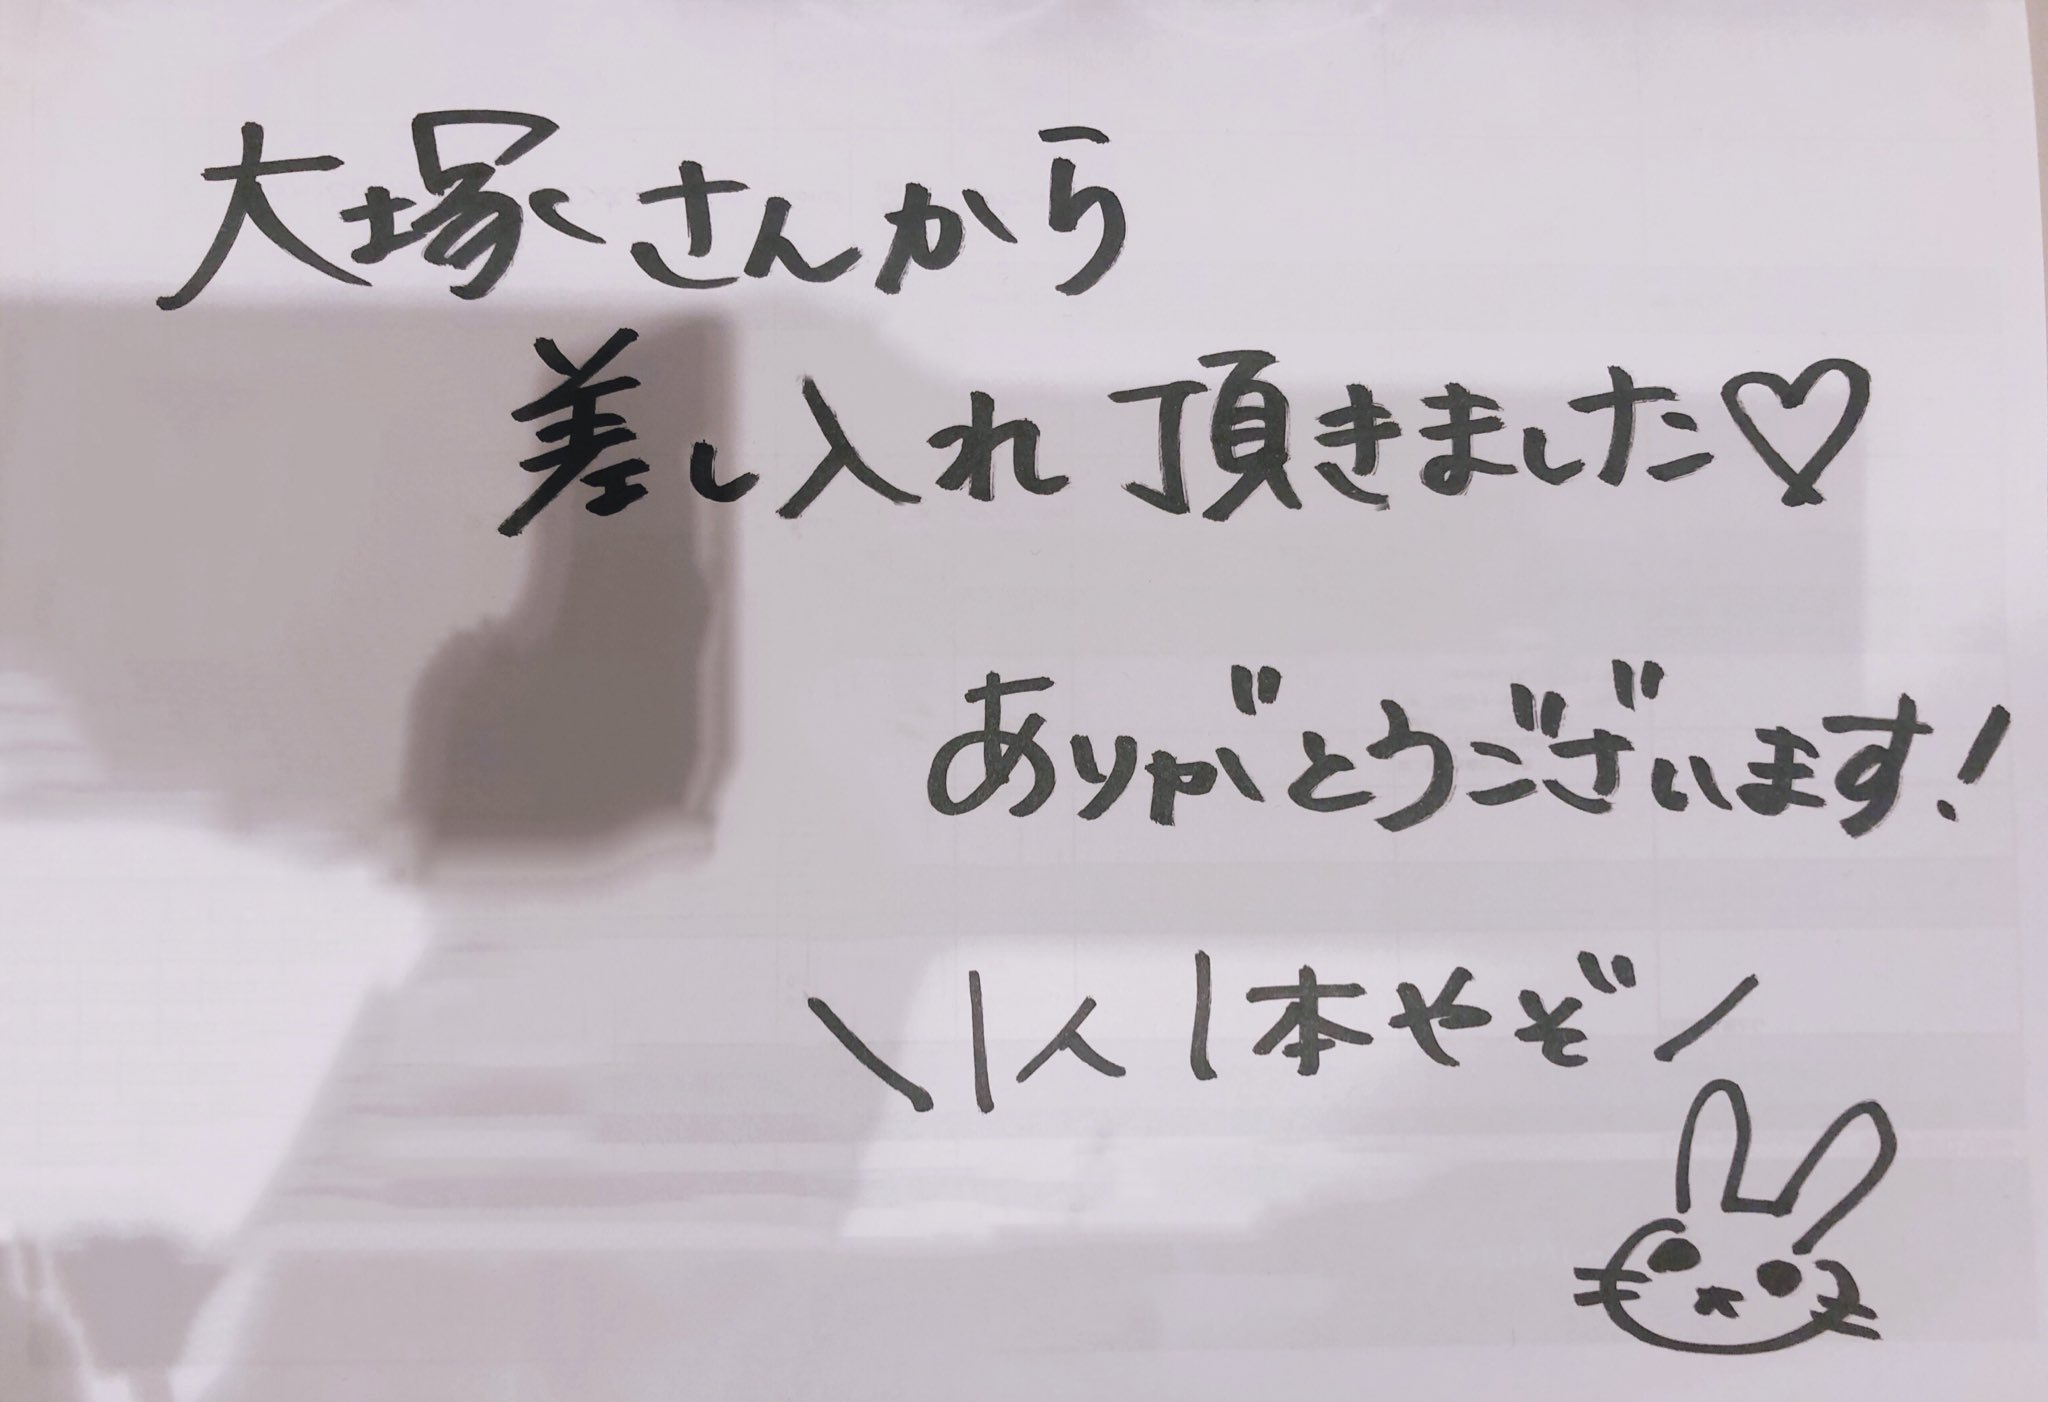 大塚さんから
差し入れ頂きました♡
ありがとうございます!
\1人1本やぞ/